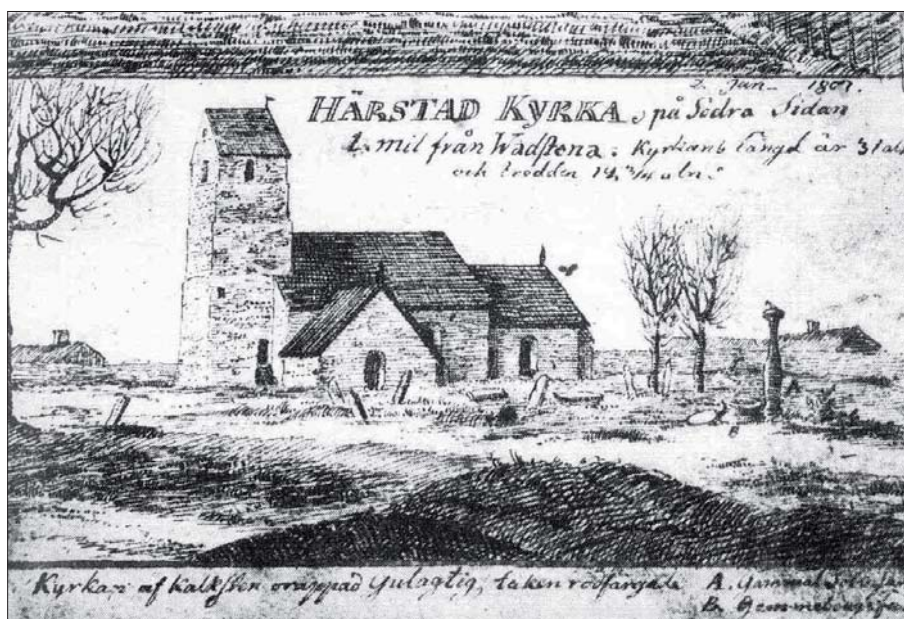 2. Jan. 1807.
HÄRSTAD KYRKA, på Södra Sidan
1. mil från Wadstena: Kyrkans längd är 31 aln
och bredden 14, 3/4 aln:
Kyrkan af Kalksten orappad gulagtig, taken rödfärgade A. Gammal
B.